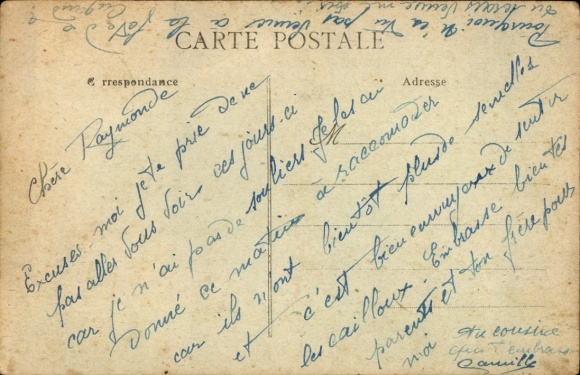 Pourquoi n'as tu pas venue a la fête à
tu serais venue
CARTE POSTALE
C rrespondance
Adresse
Chère Raymonde
Excuses-moi je te prie de ne
pas aller vous voir ces jours-ci
car je n'ai pas de souliers je les ai
Donné ce matin à raccomoder
car ils n'ont bientôt plus de semelles
et c'est bien ennuyeux de sentir
les cailloux. Embrasse bientôt
parents et ton frère pour
moi
ta cousine
qui t'embrasse
Camille